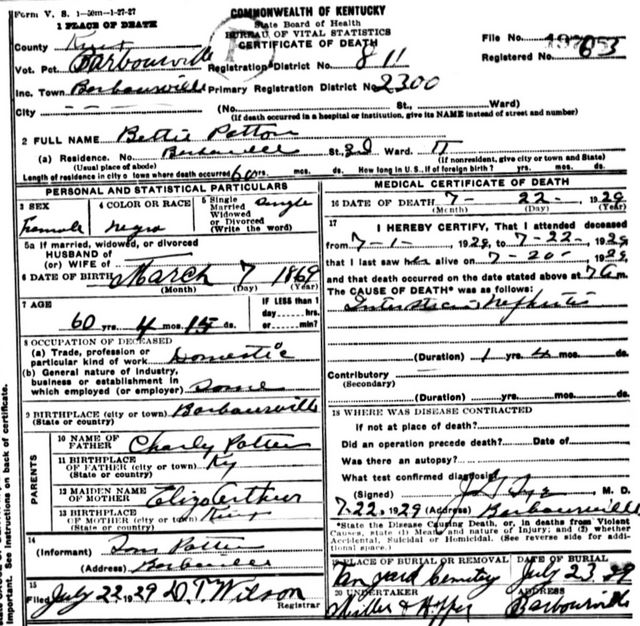 Form V. S. 1-50m-1-27-27
COMMONWEALTH OF KENTUCKY
State Board of Health
BUREAU OF VITAL STATISTICS
CERTIFICATE OF DEATH
1 PLACE OF DEATH
County Knox
File No.
Registered No. 63
Vot. Pct. Barbourville Registration District No. 811
Inc. Town Barbourville Primary Registration District No. 2300
City (No. St., Ward)
(If death occurred in a hospital or institution, give its NAME instead of street and number)
2 FULL NAME Bettie Patton
(a) Residence. No. Barbourville St. Ward.
(Usual place of abode) (If nonresident, give city or town and State)
Length of residence in city or town where death occurred 60 yrs. mos. ds. How long in U. S., if of foreign birth? yrs. mos. ds.
PERSONAL AND STATISTICAL PARTICULARS
3 SEX 4 COLOR OR RACE 5 Single
Married
Widowed
or Divorced
(Write the word)
Single
Female Negro
5a If married, widowed, or divorced
HUSBAND of
(or) WIFE of
6 DATE OF BIRTH March 7 1869
(Month) (Day) (Year)
7 AGE IF LESS than 1
day hrs.
or min.?
60 yrs. 4 mos. 15 ds.
8 OCCUPATION OF DECEASED
(a) Trade, profession or
particular kind of work Domestic
(b) General nature of industry,
business or establishment in
which employed (or employer) Same
9 BIRTHPLACE (city or town) Barbourville
(State or country)
PARENTS
10 NAME OF
FATHER Charly Patton
11 BIRTHPLACE
OF FATHER (city or town) Ky
(State or country)
12 MAIDEN NAME
OF MOTHER Eliza Arthur
13 BIRTHPLACE
OF MOTHER (city or town)
(State or country)
14
(Informant) Tom Patton
(Address) Barbourville
15
Filed July 22 1929 D. T. Wilson
Registrar
MEDICAL CERTIFICATE OF DEATH
16 DATE OF DEATH 7- 22- 1929
(Month) (Day) (Year)
17
I HEREBY CERTIFY, That I attended deceased
from 7-1- 1929, to 7-22-, 1929
that I last saw her alive on 7-20- 1929
and that death occurred on the date stated above at 7 a m.
The CAUSE OF DEATH* was as follows:
Interstitial Nephritis
(Duration) 1 yrs. 4 mos. ds.
Contributory
(Secondary)
(Duration) yrs. mos. ds.
18 WHERE WAS DISEASE CONTRACTED
If not at place of death?
Did an operation precede death? Date of
Was there an autopsy?
What test confirmed diagnosis?
(Signed) M. D.
7-22, 1929 (Address) Barbourville
*State the Disease Causing Death, or, in deaths from Violent
Causes, state (1) Means and nature of Injury; and (2) whether
Accidental, Suicidal or Homicidal. (See reverse side for addi-
tional space.)
19 PLACE OF BURIAL OR REMOVAL DATE OF BURIAL
Tan yard Cemetery July 23 29
20 UNDERTAKER ADDRESS
Miller & Hopper Barbourville
important. See instructions on back of certificate.